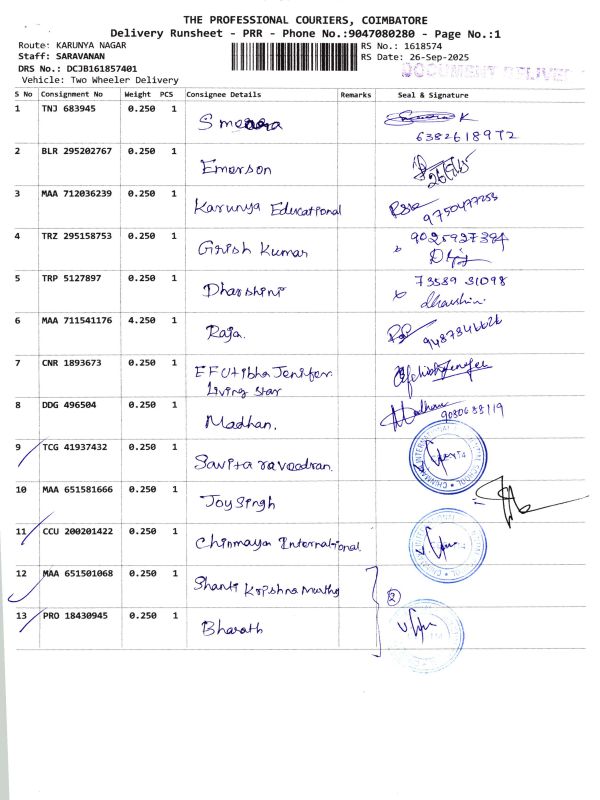 THE PROFESSIONAL COURIERS, COIMBATORE
Delivery Runsheet - PRR - Phone No.:9047080280 - Page No.:1
Route: KARUNYA NAGAR RS No.: 1618574
Staff: SARAVANAN RS Date: 26-Sep-2025
DRS No.: DCJB161857401 DOCUMENT DELIVE
Vehicle: Two Wheeler Delivery
S No Consignment No Weight PCS Consignee Details Remarks Seal & Signature
1 TNJ 683945 0.250 1 K
6382618972
2 BLR 295202767 0.250 1 Emerson
3 MAA 712036239 0.250 1 Karunya Educational 9750477255
4 TRZ 295158753 0.250 1 Girish Kumar
5 TRP 5127897 0.250 1 Dharshini 73589 31098
dharshini
6 MAA 711541176 4.250 1 Raja.
7 CNR 1893673 0.250 1 Jenifer
Living Star
8 DDG 496504 0.250 1 Madhan. Madhan
9 TCG 41937432 0.250 1 Savita
10 MAA 651581666 0.250 1 Joy Singh
11 CCU 200201422 0.250 1 Chinmaya International
12 MAA 651501068 0.250 1 Shanti Krishna Murthy 2
13 PRO 18430945 0.250 1 Bharath